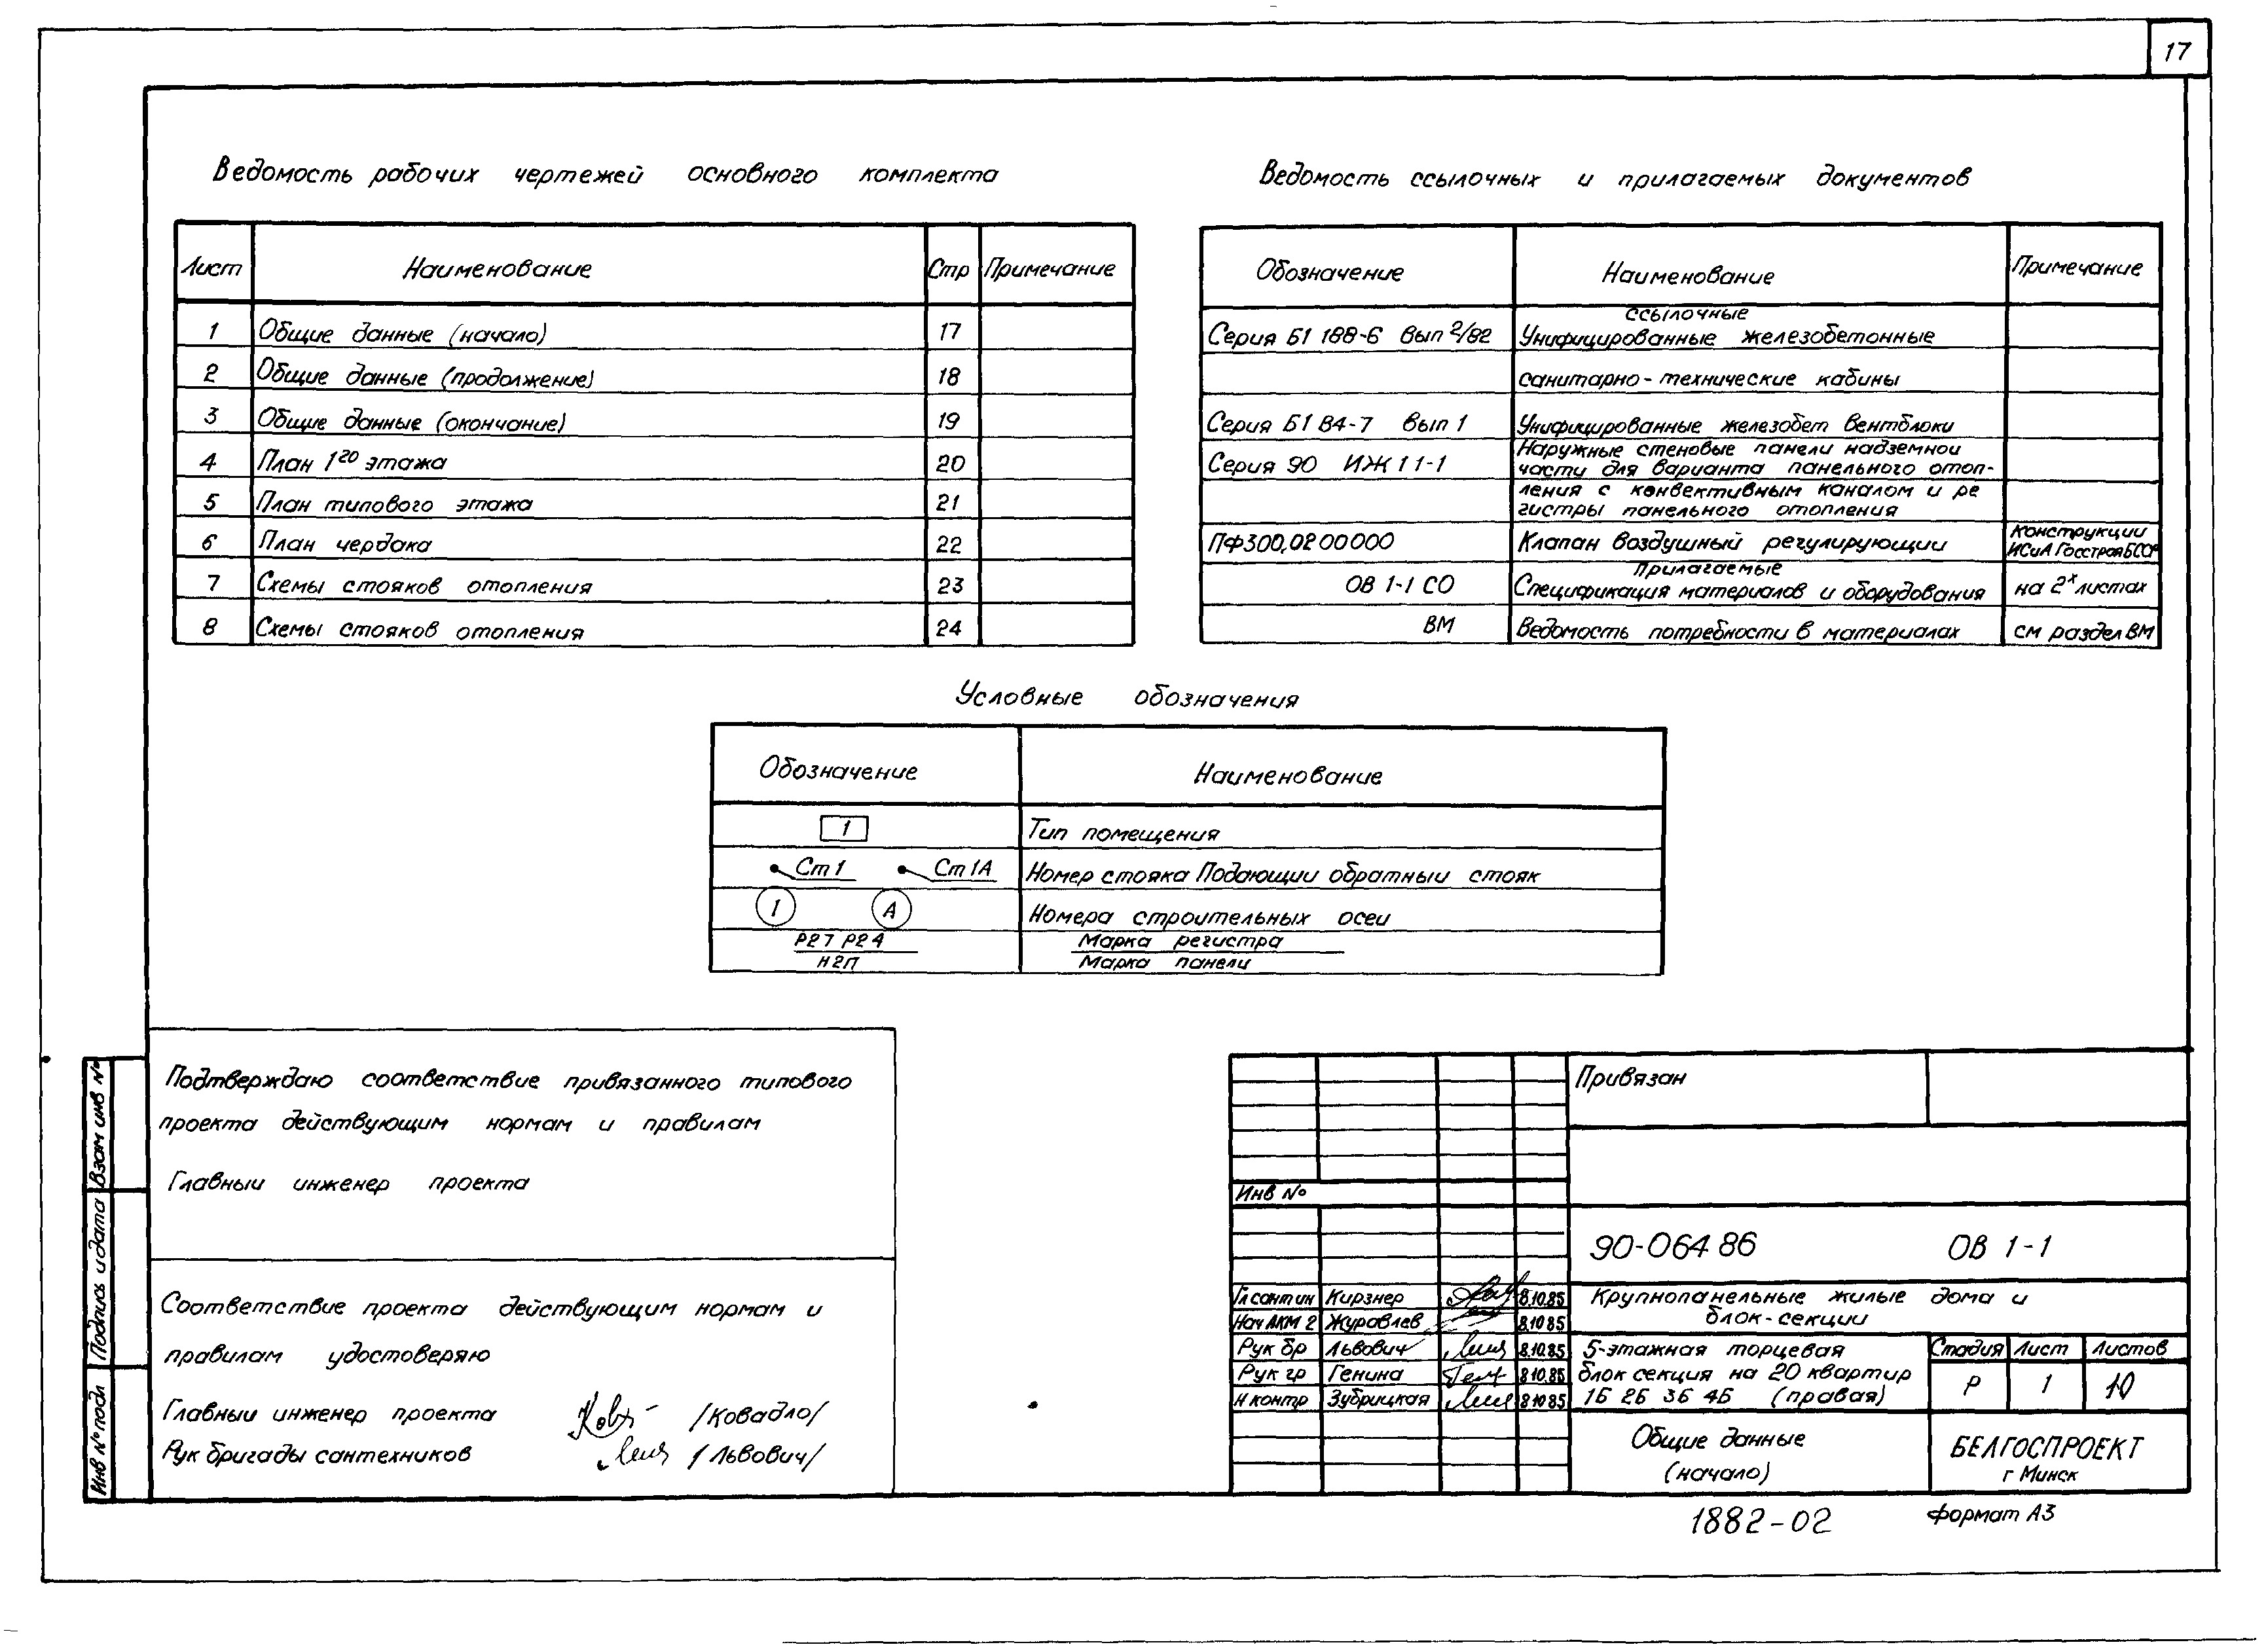 17
Ведомость рабочих чертежей основного комплекта
Лист Наименование Стр Примечание
1 Общие данные (начало) 17
2 Общие данные (продолжение) 18
3 Общие данные (окончание) 19
4 План 1го этажа 20
5 План типового этажа 21
6 План чердака 22
7 Схемы стояков отопления 23
8 Схемы стояков отопления 24
Ведомость ссылочных и прилагаемых документов
Обозначение Наименование Примечание
ссылочные
Серия Б1 188-6 Вып 2/82 Унифицированные железобетонные
санитарно-технические кабины
Серия Б1 В4-7 Вып 1 Унифицированные железобет вентблоки
Серия 90 ИЖ 1 1-1 Наружные стеновые панели надземнои
части для варианта панельного отоп-
ления с конвективным каналом и ре
гистры панельного отопления
ПФ300.0200000 Клапан воздушный регулирующии Конструкции
ИСиА Госстроя БССР
прилагаемые
ОВ 1-1 СО Спецификация материалов и оборудования на 2х листах
ВМ Ведомость потребности в материалах см раздел ВМ
Условные обозначения
Обозначение Наименование
1 Тип помещения
Ст1 Ст1А Номер стояка Подающии обратныи стояк
1 А Номера строительных осеи
Р27 Р24 Марка регистра
Н2П Марка панели
Подтверждаю соответствие привязанного типового
проекта действующим нормам и правилам
Главныи инженер проекта
Соответствие проекта действующим нормам и
правилам удостоверяю
Главныи инженер проекта /Ковадло/
Рук бригады сантехников /Львович/
Взам инв №
Подпись и дата
Инв № подл
Привязан
Инв №
90-064 86 ОВ 1-1
Гл сантин Кирзнер 8.10.85
Нач АКМ 2 Журавлев 8.10 85
Рук бр Львович 8.10.85
Рук гр Генина 8 10.85
Н контр Зубрицкая 8 10 85
Крупнопанельные жилые дома и
блок-секции
5-этажная торцевая
блок секция на 20 квартир
1Б 2Б 3Б 4Б (правая)
Стадия Лист Листов
Р 1 10
Общие данные
(начало)
БЕЛГОСПРОЕКТ
г Минск
1882-02
формат А3